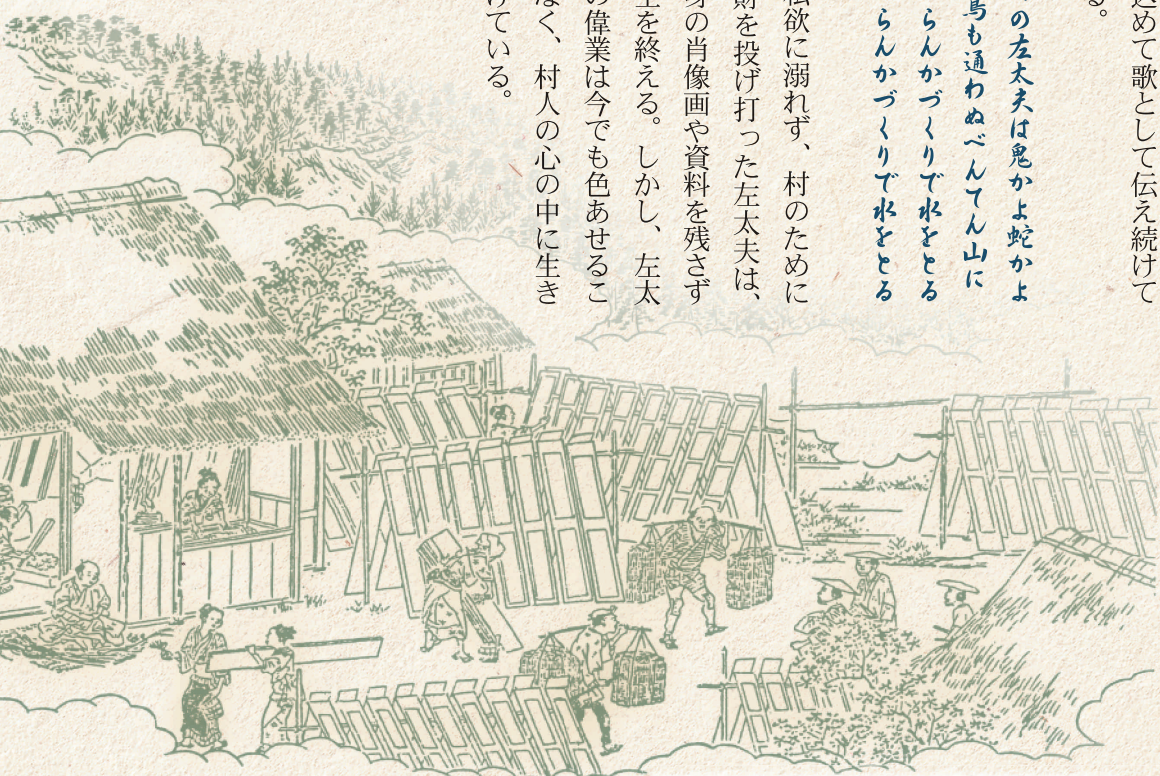 込めて歌として伝え続けて
る。
の左太夫は鬼かよ蛇かよ
鳥も通わぬべんてん山に
らんかづくりで水をとる
らんかづくりで水をとる
私欲に溺れず、村のために
財を投げ打った左太夫は、
身の肖像画や資料を残さず
生を終える。しかし、左太
の偉業は今でも色あせるこ
なく、村人の心の中に生き
けている。